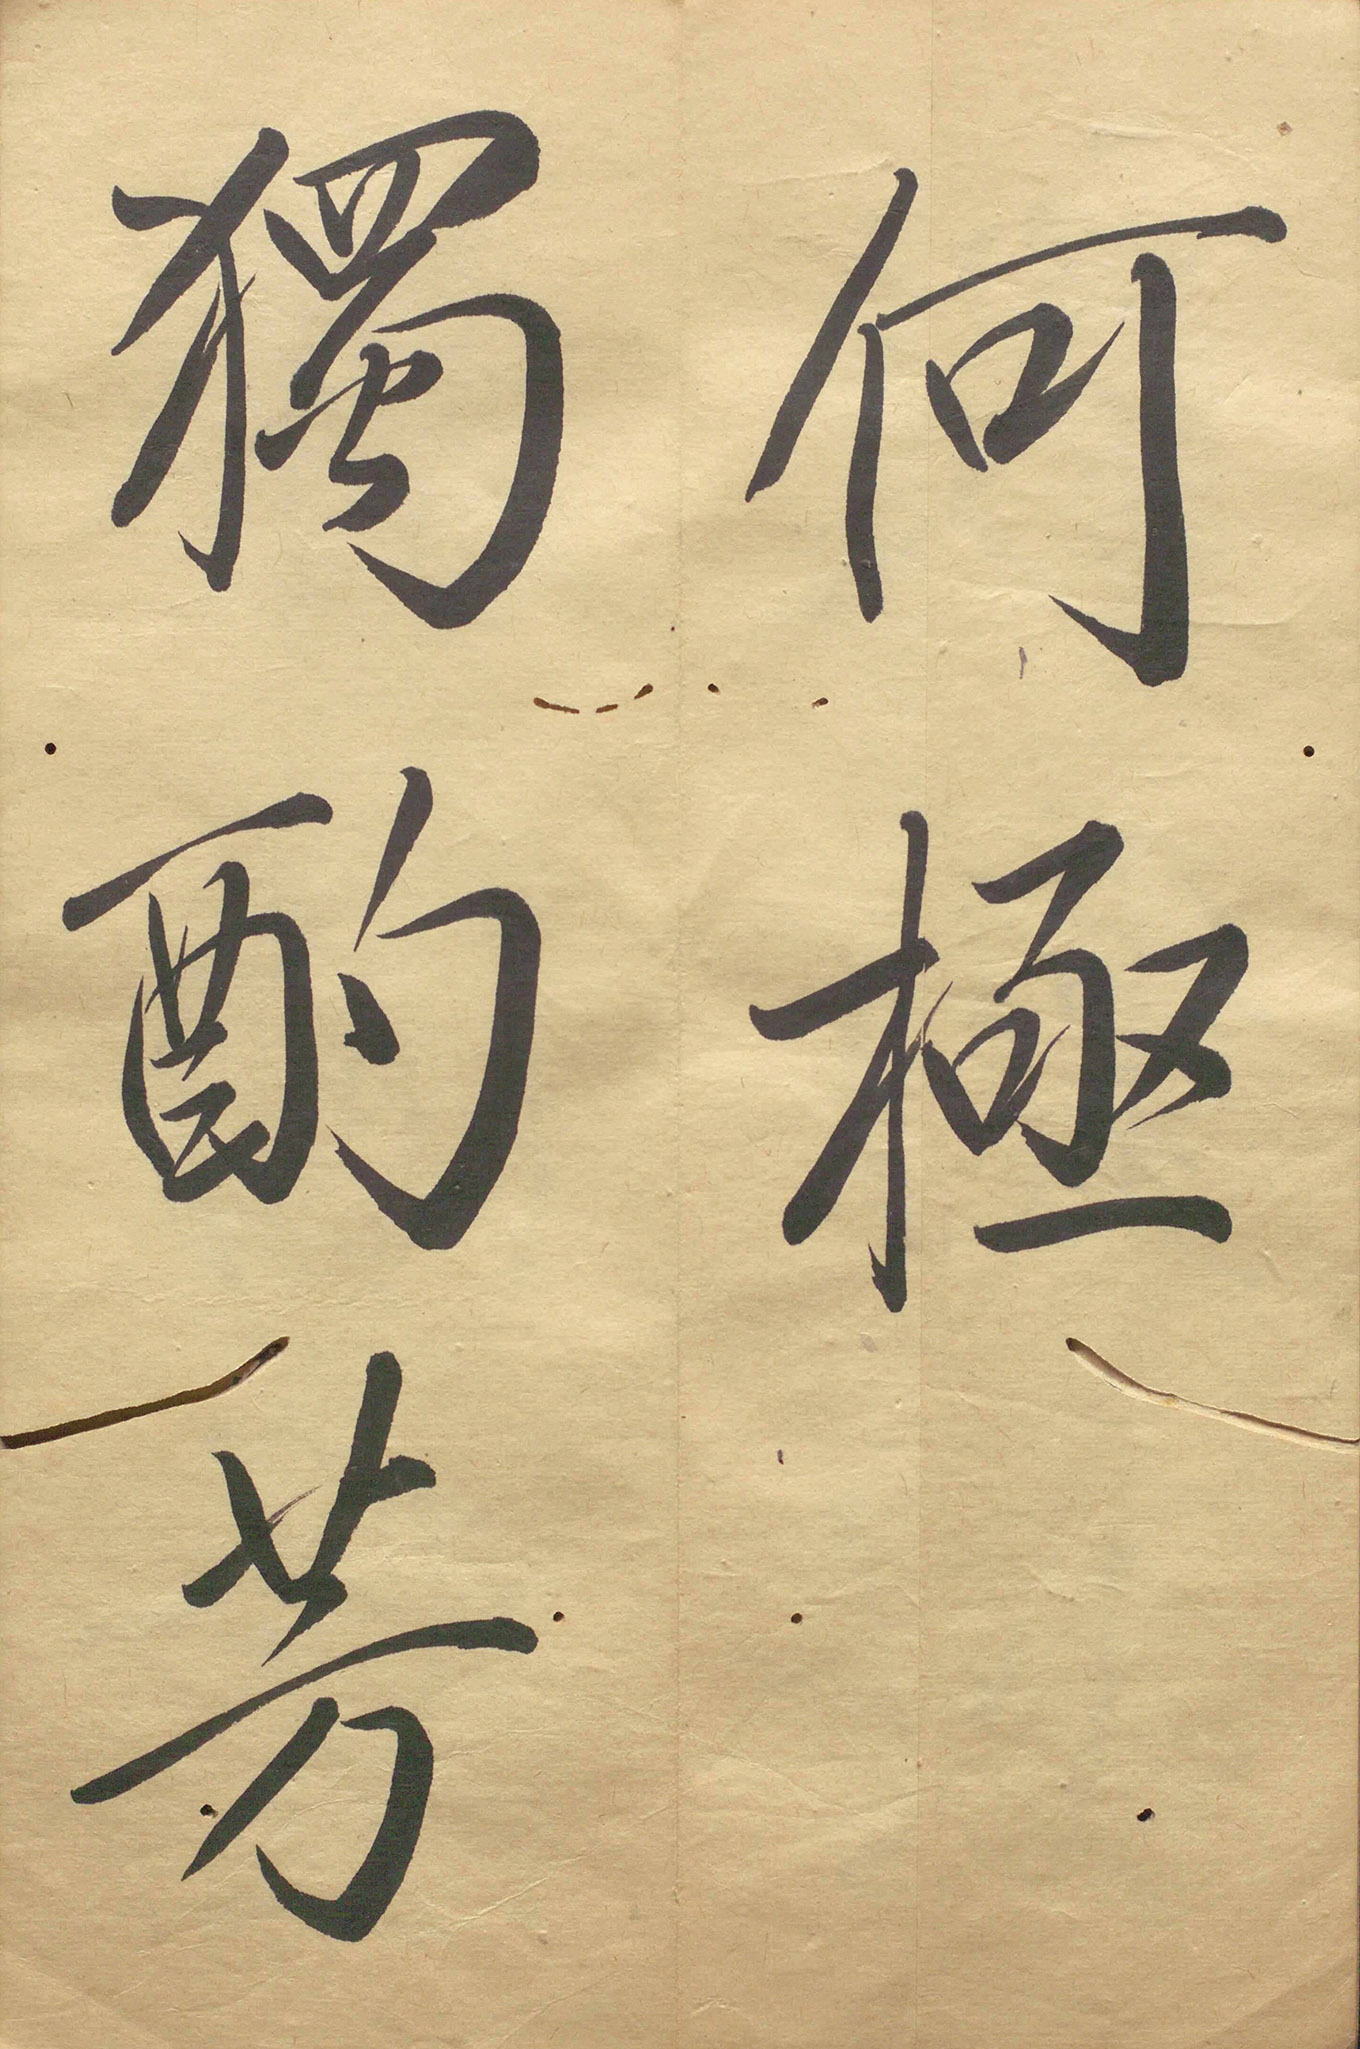 何極
獨酌芳